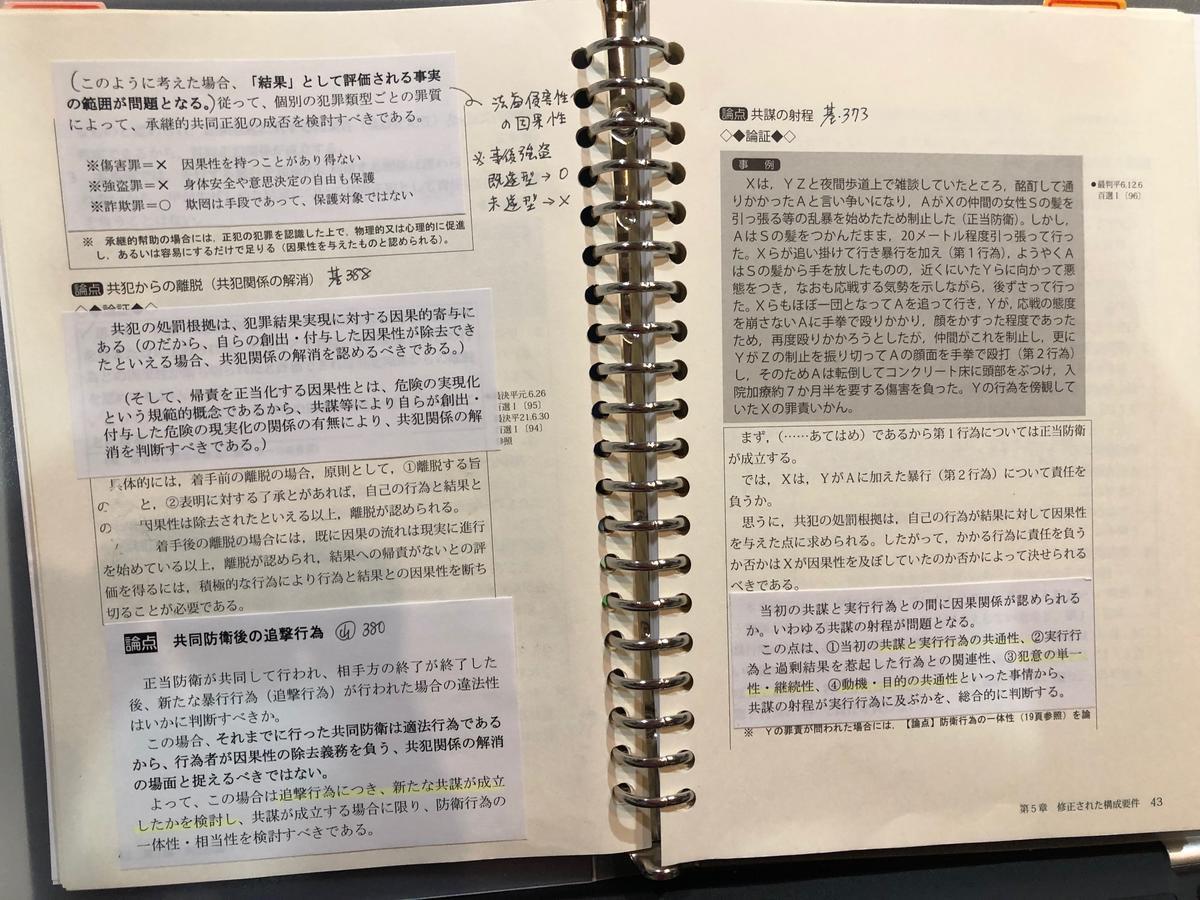 （このように考えた場合、「結果」として評価される事実
の範囲が問題となる。）従って、個別の犯罪類型ごとの罪質
によって、承継的共同正犯の成否を検討すべきである。
※傷害罪＝× 因果性を持つことがあり得ない
※強盗罪＝× 身体安全や意思決定の自由も保護
※詐欺罪＝○ 欺罔は手段であって、保護対象ではない
法益侵害性
の因果性
※事後強盗
既遂型→○
未遂型→×
※ 承継的幇助の場合には，正犯の犯罪を認識した上で，物理的又は心理的に促進
し，あるいは容易にするだけで足りる（因果性を与えたものと認められる）。
論点 共犯からの離脱（共犯関係の解消） 基388
◇◆論証◆◇
共犯の処罰根拠は、犯罪結果実現に対する因果的寄与に
ある（のだから、自らの創出・付与した因果性が除去でき
たといえる場合、共犯関係の解消を認めるべきである。）
（そして、帰責を正当化する因果性とは、危険の実現化
という規範的概念であるから、共謀等により自らが創出・
付与した危険の現実化の関係の有無により、共犯関係の解
消を判断すべきである。）
決平元.6.26
百選Ⅰ［95］
決平21.6.30
百選Ⅰ［94］
参照
具体的には，着手前の離脱の場合，原則として，①離脱する旨
の と，②表明に対する了承とがあれば，自己の行為と結果と
の 因果性は除去されたといえる以上，離脱が認められる。
着手後の離脱の場合には，既に因果の流れは現実に進行
を始めている以上，離脱が認められ，結果への帰責がないとの評
価を得るには，積極的な行為により行為と結果との因果性を断ち
切ることが必要である。
論点 共同防衛後の追撃行為 山380
正当防衛が共同して行われ、相手方の終了が終了した
後、新たな暴行行為（追撃行為）が行われた場合の違法性
はいかに判断すべきか。
この場合、それまでに行った共同防衛は適法行為である
から、行為者が因果性の除去義務を負う、共犯関係の解消
の場面と捉えるべきではない。
よって、この場合は追撃行為につき、新たな共謀が成立
したかを検討し、共謀が成立する場合に限り、防衛行為の
一体性・相当性を検討すべきである。
論点 共謀の射程 基.373
◇◆論証◆◇
事例
Xは，YZと夜間歩道上で雑談していたところ，酩酊して通
りかかったAと言い争いになり，AがXの仲間の女性Sの髪を
引っ張る等の乱暴を始めたため制止した（正当防衛）。しかし，
AはSの髪をつかんだまま，20メートル程度引っ張って行っ
た。Xらが追い掛けて行き暴行を加え（第1行為），ようやくA
はSの髪から手を放したものの，近くにいたYらに向かって悪
態をつき，なおも応戦する気勢を示しながら，後ずさって行っ
た。Xらもほぼ一団となってAを追って行き，Yが，応戦の態度
を崩さないAに手拳で殴りかかり，顔をかすった程度であった
ため，再度殴りかかろうとしたが，仲間がこれを制止し，更に
YがZの制止を振り切ってAの顔面を手拳で殴打（第2行為）
し，そのためAは転倒してコンクリート床に頭部をぶつけ，入
院加療約7か月半を要する傷害を負った。Yの行為を傍観して
いたXの罪責いかん。
●最判平6.12.6
百選Ⅰ［96］
まず，（……あてはめ）であるから第1行為については正当防衛
が成立する。
では，Xは，YがAに加えた暴行（第2行為）について責任を
負うか。
思うに，共犯の処罰根拠は，自己の行為が結果に対して因果性
を与えた点に求められる。したがって，かかる行為に責任を負う
か否かはXが因果性を及ぼしていたのか否かによって決せられる
べきである。
当初の共謀と実行行為との間に因果関係が認められる
か。いわゆる共謀の射程が問題となる。
この点は、①当初の共謀と実行行為の共通性、②実行行
為と過剰結果を惹起した行為との関連性、③犯意の単一
性・継続性、④動機・目的の共通性といった事情から、
共謀の射程が実行行為に及ぶかを、総合的に判断する。
※ Yの罪責が問われた場合には，【論点】防衛行為の一体性（19頁参照）を論
第5章 修正された構成要件 43